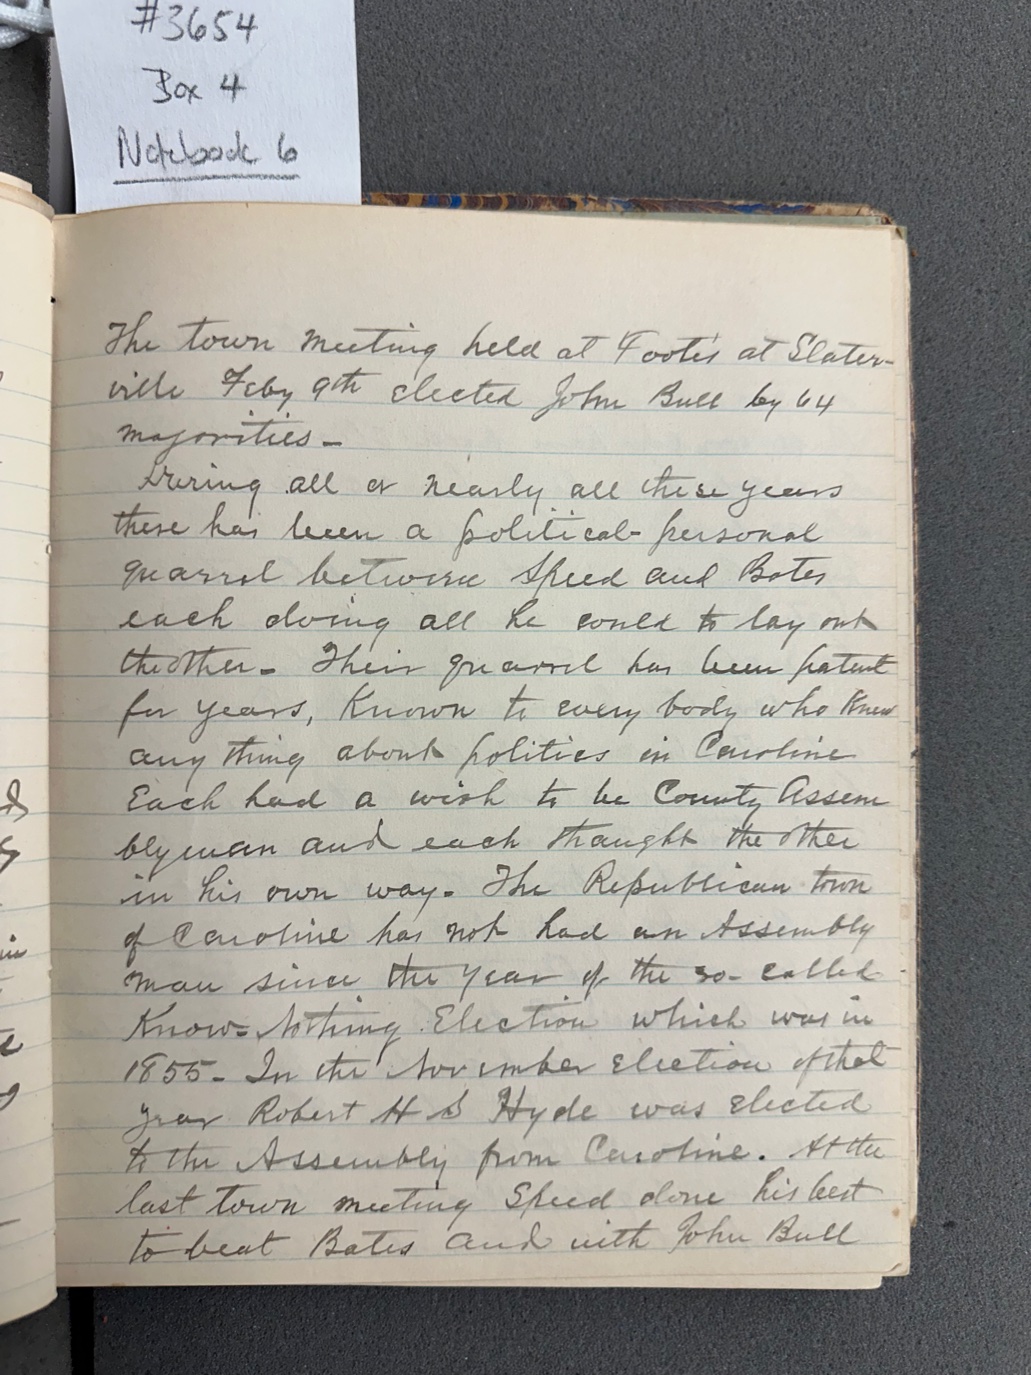 #3654
Box 4
Notebook 6
The town meeting held at Foote's at Slater-
ville Feby 9th elected John Bull by 64
majorities -
During all or nearly all these years
there has been a political-personal
quarrel between Speed and Bates
each doing all he could to lay out
the other - Their quarrel has been patent
for years, Known to every body who Knew
any thing about politics in Caroline
Each had a wish to be County Assem
blyman and each thought the other
in his own way - The Republican town
of Caroline has not had an Assembly
man since the year of the so-called
Know-Nothing Election which was in
1855 - In the November election of that
year Robert H S Hyde was elected
to the Assembly from Caroline. At the
last town meeting Speed done his best
to beat Bates and with John Bull